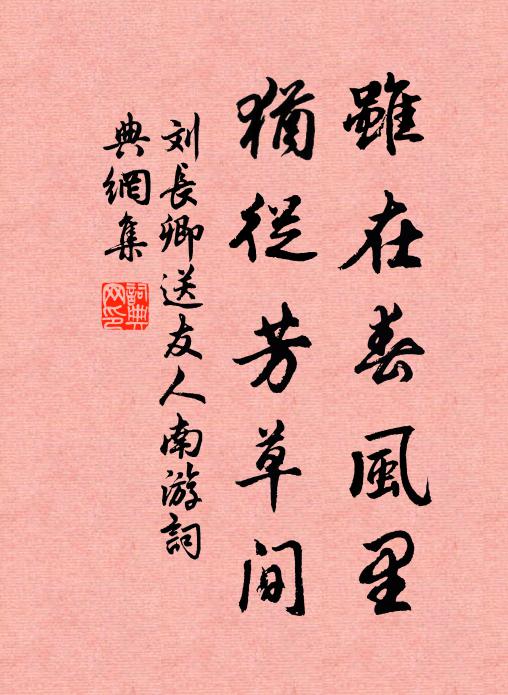 雖在春風里
猶從芳草間
刘長卿送友人南游詞
典網集
詞典网印